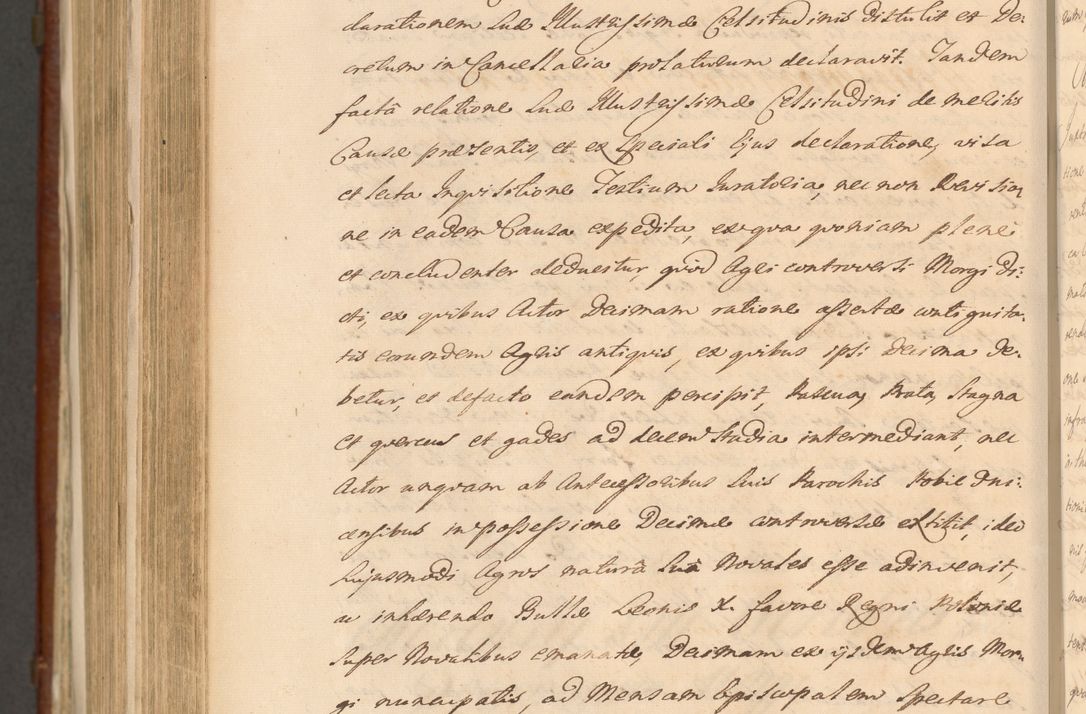 clarationem Suæ Illustrissimæ Celsitudinis distulit et De:
cretum in Cancellaria prolaturum declaravit. Tandem
factâ relatione Suæ Illustrissimæ Celsitudini de meritis
Causæ præsentis, et ex speciali Ejus declaratione, visa
et lecta Inquisitione Testium Juratoria, nec non Revisio,
ne in eadem Causa expedita, ex qua quoniam plene
et concludenter deducitur, quod Agri controversi Morgi di:
cti, ex quibus Actor Decimam ratione assertæ contiguita:
tis eorundem Agris antiquis, ex quibus ipsi decima de:
betur, et defacto eandem percipit, Pascua, Prata, Stagna
et quercus et gades ad decem Stadia intermediant, nec
Actor unquam ab Antecessoribus Suis Parochis Pobiedni:
censibus in possessione Decimæ controversæ extitit, ideo
hujusmodi Agros naturâ suâ Novales esse adinvenit,
ac inhærendo Bullæ Leonis X. favore Regni Poloniæ
super Novalibus emanatæ, Decimam ex ijsdem Agris Mor,
gi nuncupatis, ad Mensam Episcopalem spectare